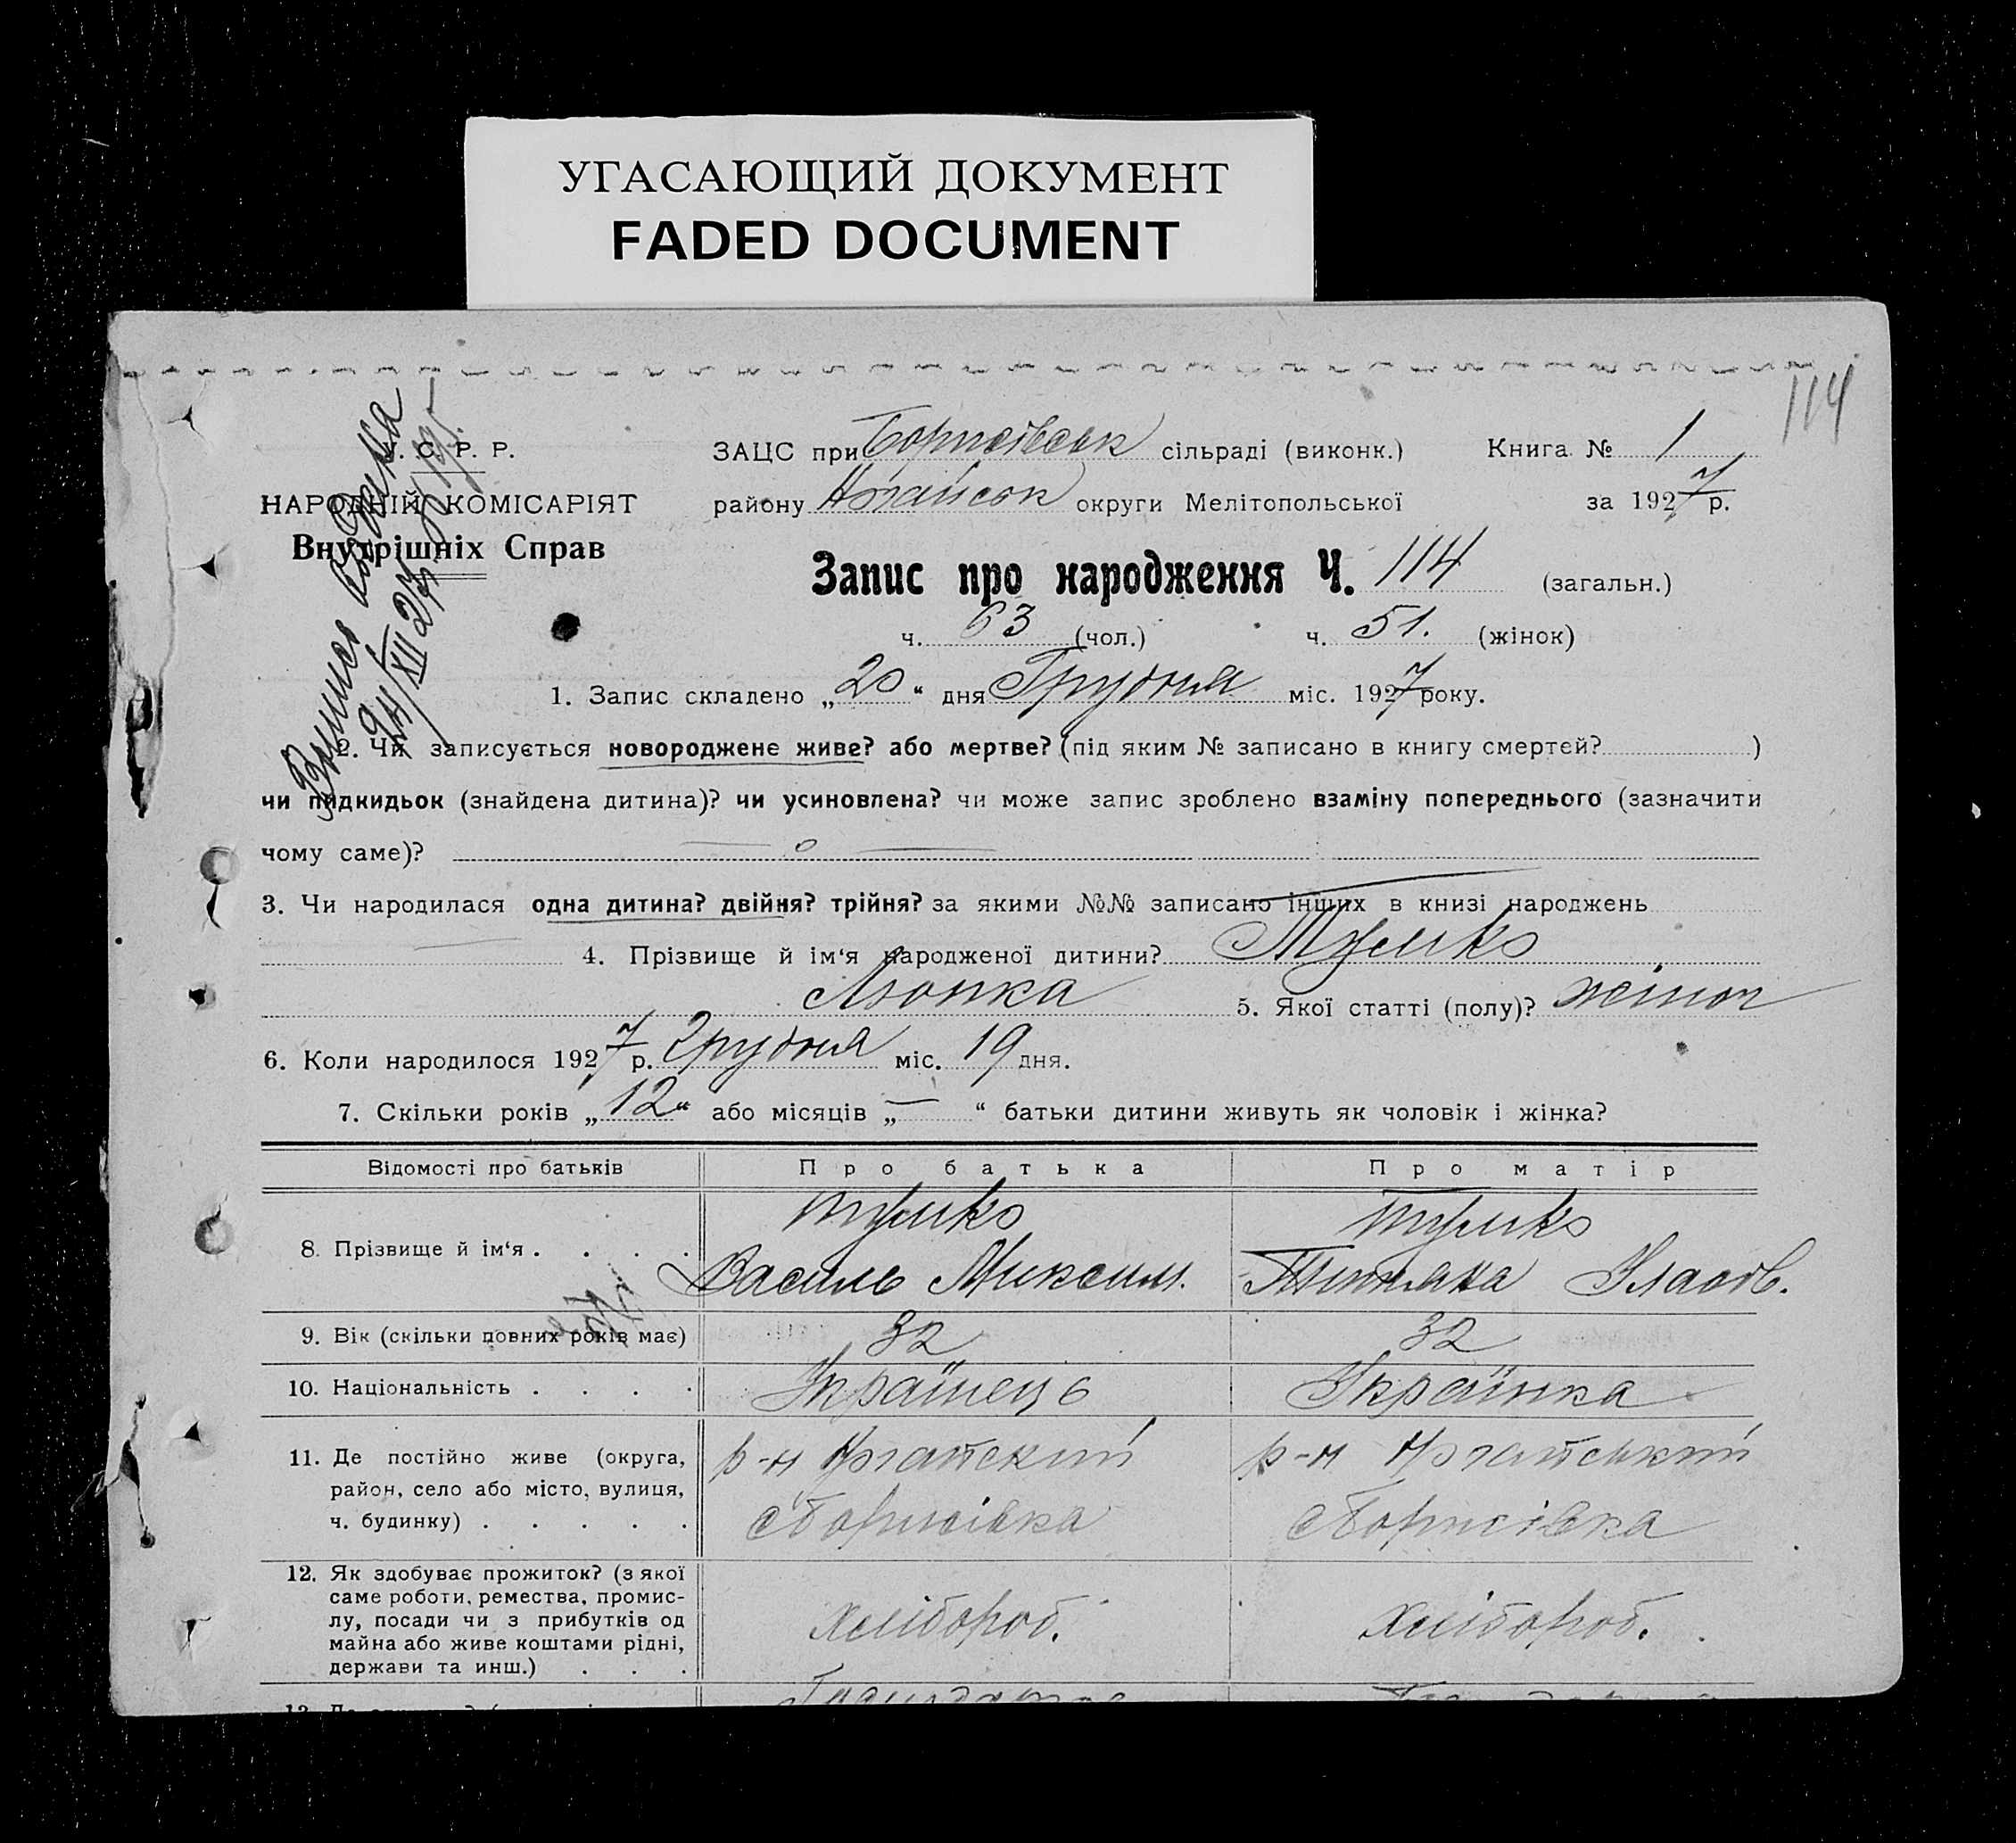 УГАСАЮЩИЙ ДОКУМЕНТ
FADED DOCUMENT
114
У. С. Р. Р.
НАРОДНІЙ КОМІСАРІЯТ
Внутрішніх Справ
Випись видана
ЗАЦС при Борисівськ сільраді (виконк.) Книга № 1
району округи Мелітопольської за 1927 р.
Запис про народження Ч. 114 (загальн.)
ч. 63 (чол.) ч. 51. (жінок)
1. Запис складено „20“ дня Грудня міс. 1927 року.
2. Чи записується новороджене живе? або мертве? (під яким № записано в книгу смертей? )
чи підкидьок (знайдена дитина)? чи усиновлена? чи може запис зроблено взаміну попереднього (зазначити
чому саме)? — о —
3. Чи народилася одна дитина? двійня? трійня? за якими №№ записано інших в книзі народжень
— 4. Прізвище й ім‘я народженої дитини?
5. Якої статті (полу)? жіноч
6. Коли народилося 1927 р. Грудня міс. 19 дня.
7. Скільки років „12“ або місяців „—“ батьки дитини живуть як чоловік і жінка?
Відомості про батьків Про батька Про матір
8. Прізвище й ім‘я . . . .
Василь Максим.
9. Вік (скільки повних років має) 32 32
10. Національність . . . . Українець Українка
11. Де постійно живе (округа, р-н р-н
район, село або місто, вулиця,
ч. будинку) . . . . . с Борисівка с Борисівка
12. Як здобуває прожиток? (з якої
саме роботи, ремества, промис-
лу, посади чи з прибутків од хлібороб. хлібороб.
майна або живе коштами рідні,
держави та инш.) . . .